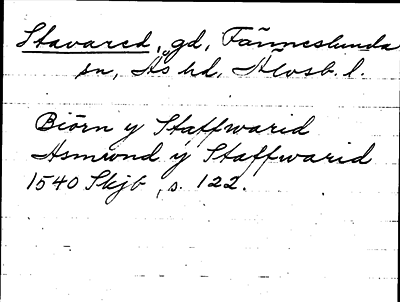 Stavared, gd, Fänneslunda
sn, Ås hd, Älvsb. l.
Biörn y Staffwarid
Asmwnd ÿ Staffwarid
1540 Skjb, s. 122.